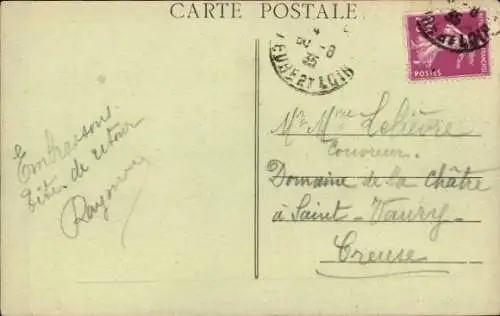 CARTE POSTALE
30-8
35
EURE ET LOIR
POSTES
Embrassons
de retour
Raymon
Mr. Mme Lelièvre
Couvreur.
Domaine de la Châtre
à Saint-Vaury-
Creuse